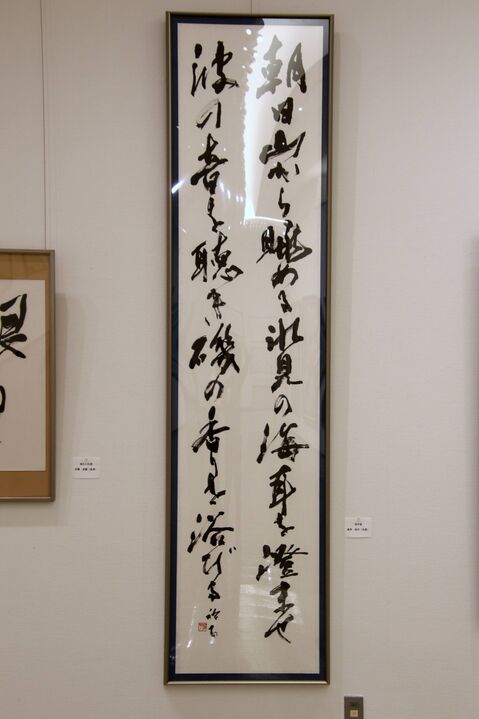 朝日山から眺める氷見の海耳を澄ませ
波の音を聴き磯の香りを浴びる